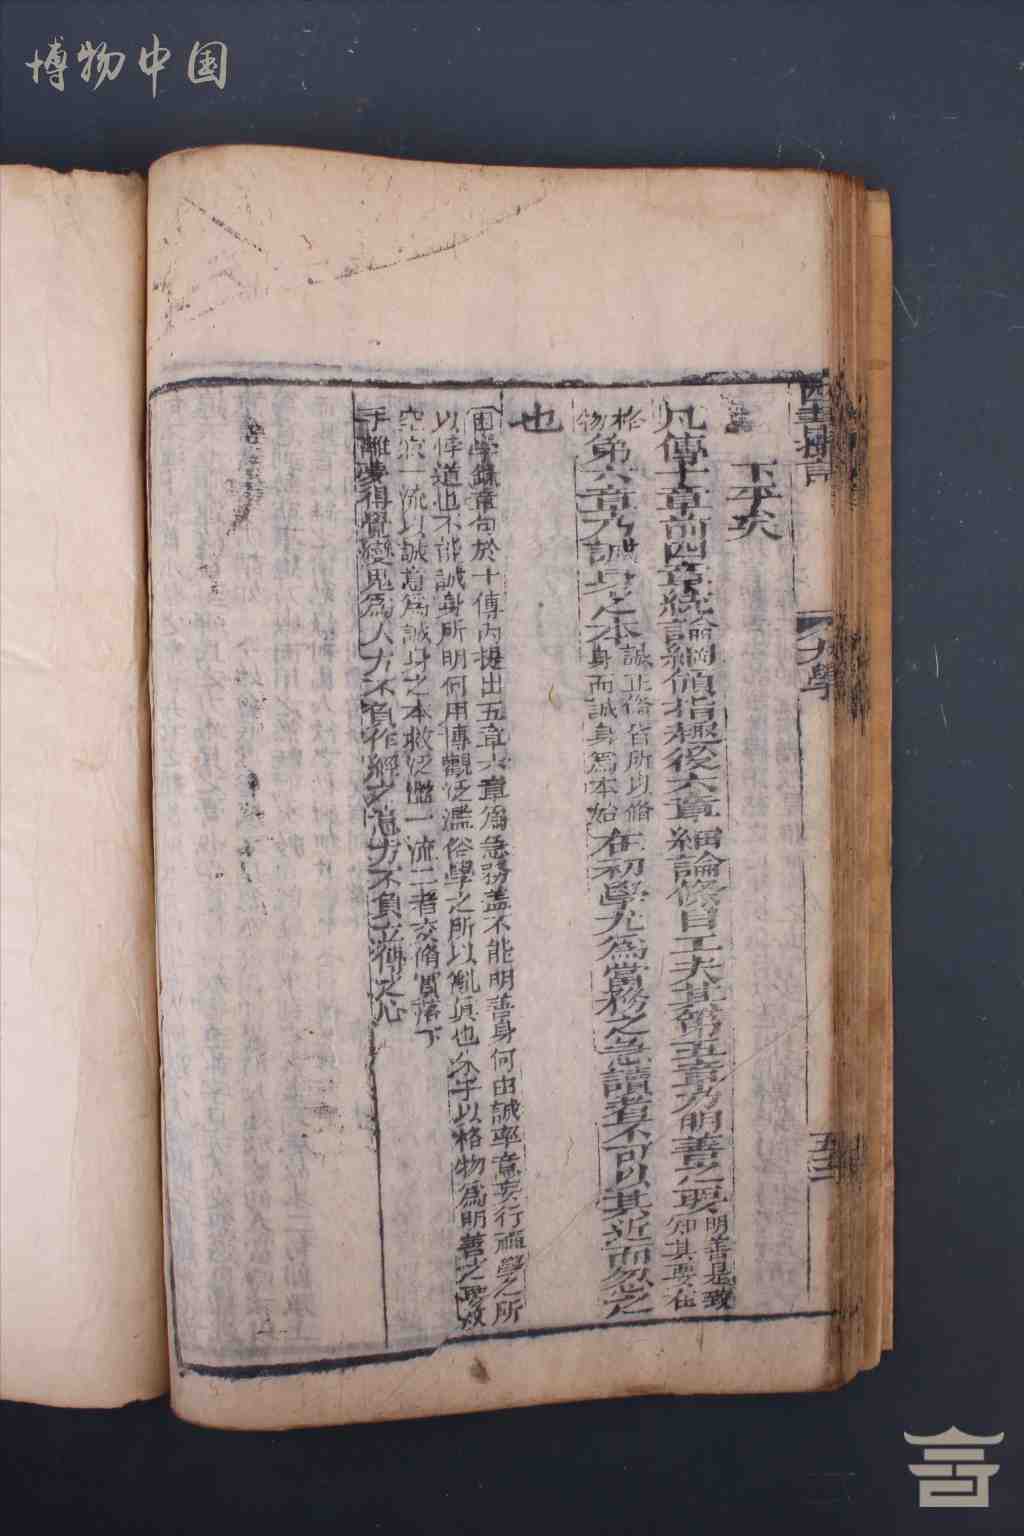 博物中国
四書撮言
大學
五二
下平矣
凡傳十章前四章統論綱領指趣後六章細論條目工夫其第五章乃明善之要明善是致知其要在
格物第六章乃誠身之本誠正脩皆所以脩身而誠身爲本始在初學尤爲當務之急讀者不可以其近而忽之
也
困學錄章句於十傳內提出五章六章爲急務盖不能明善身何由誠率意妄行禪學之所
以悖道也不能誠身所明何用博觀泛濫俗學之所以亂眞也朱子以格物爲明善之要救
空寂一流以誠意爲誠身之本救泛濫一流二者交脩實落下
手離夢得覺變鬼爲人方不負作經之意方不負立傳之心